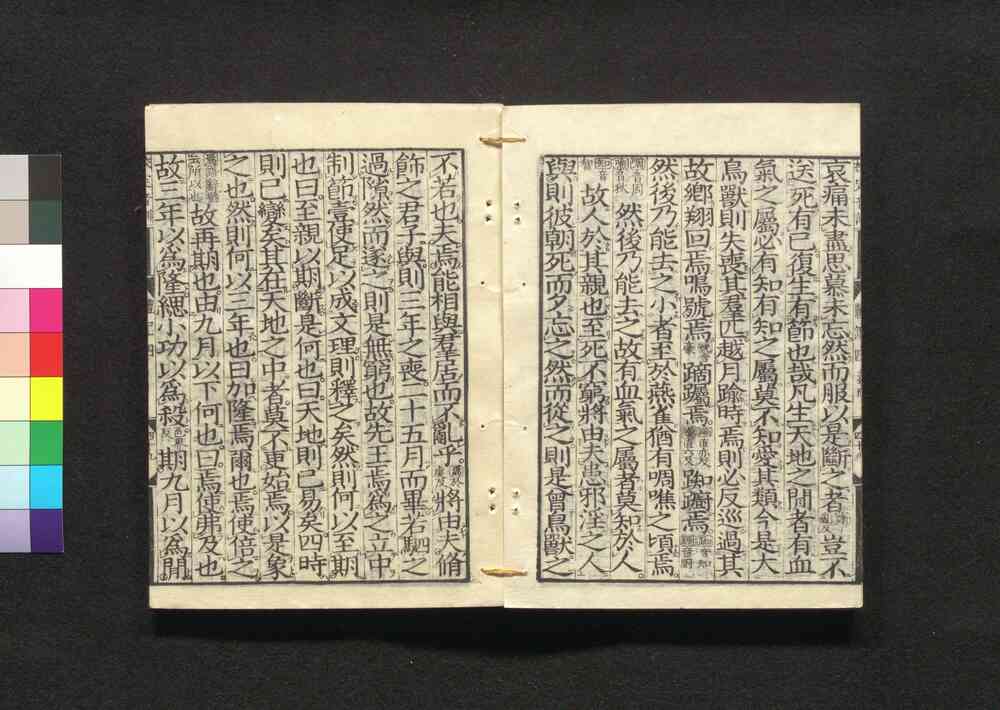 哀痛未盡思慕未忘然而服以是斷之者豈不
送死有已復生有節也哉凡生天地之閒者有血
氣之屬必有知有知之屬莫不知愛其類今是大
鳥獸則失喪其羣匹越月踰時焉則必反巡過其
故鄉翔回焉鳴號焉蹢躅焉踟躕焉
然後乃能去之小者至於燕雀猶有啁噍之頃焉
然後乃能去之故有血氣之屬者莫知於人
故人於其親也至死不窮將由夫患邪淫之人
與則彼朝死而夕忘之然而從之則是曾鳥獸之
不若也夫焉能相與羣居而不亂乎將由夫脩
飾之君子與則三年之喪二十五月而畢若駟之
過隙然而遂之則是無窮也故先王焉爲之立中
制節壹使足以成文理則釋之矣然則何以至期
也曰至親以期斷是何也曰天地則已易矣四時
則已變矣其在天地之中者莫不更始焉以是象
之也然則何以三年也曰加隆焉爾也焉使倍之
故再期也由九月以下何也曰焉使弗及也
故三年以爲隆緦小功以爲殺期九月以爲閒